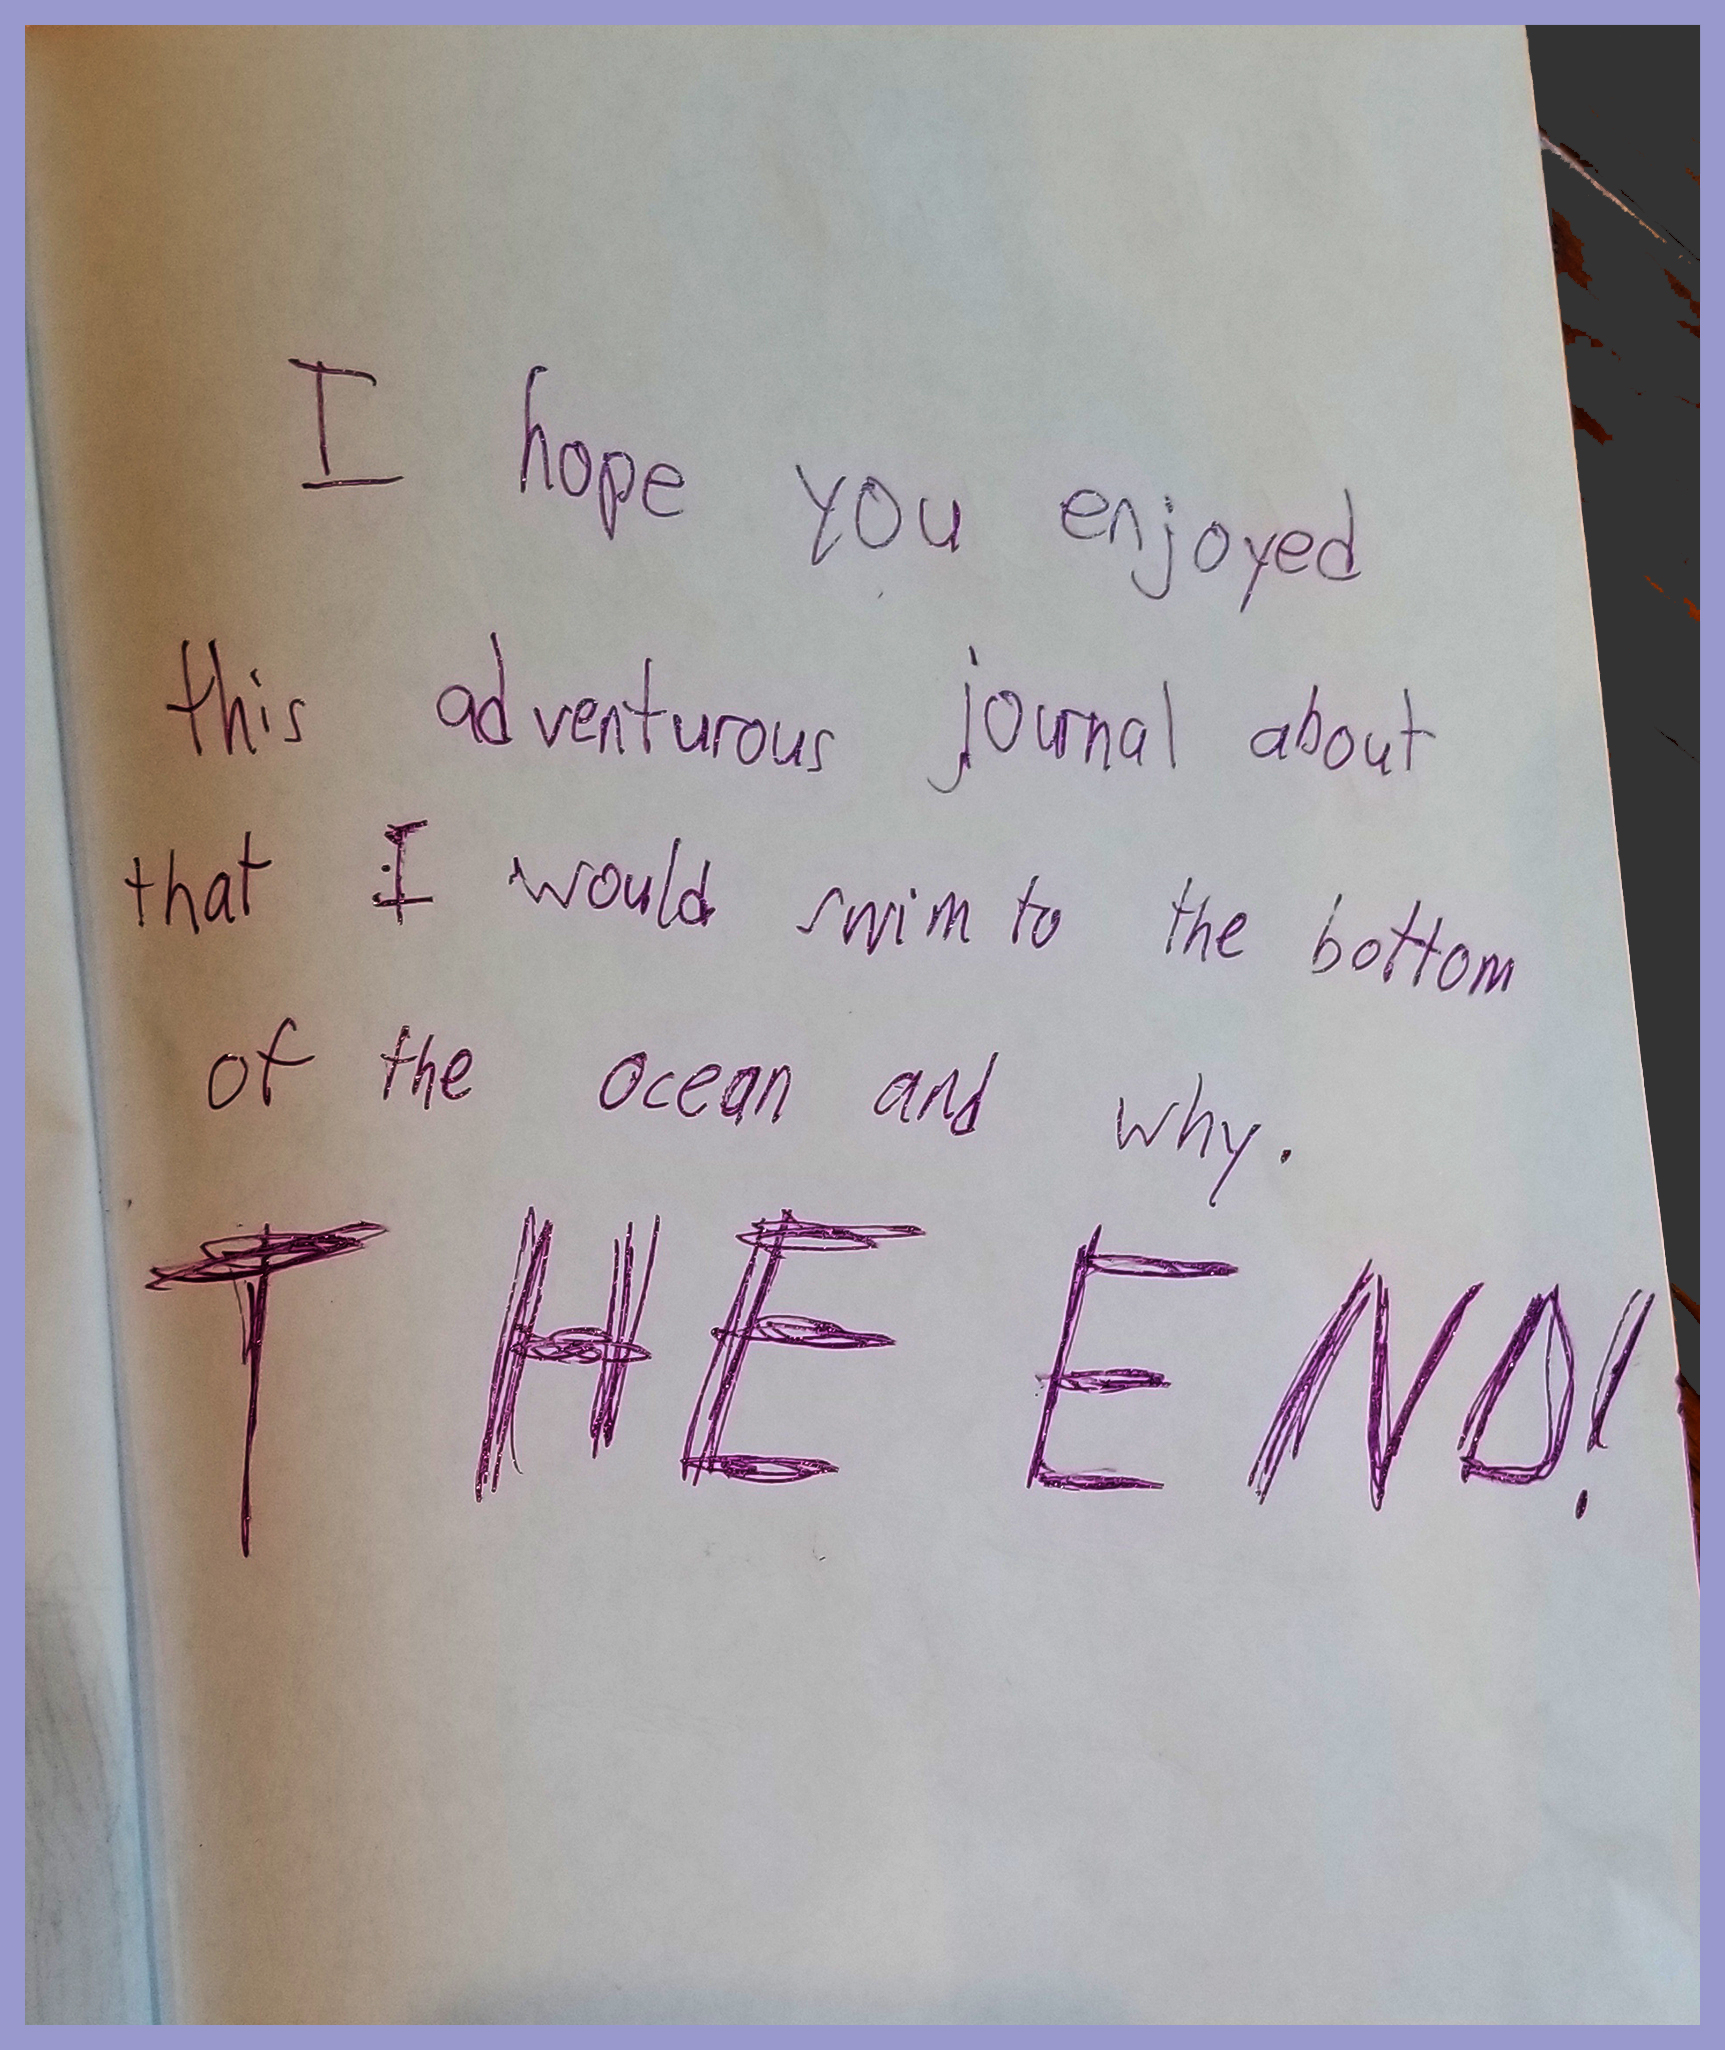 I hope you enjoyed
this adventurous journal about
that I would swim to the bottom
of the ocean and why.
THE END!